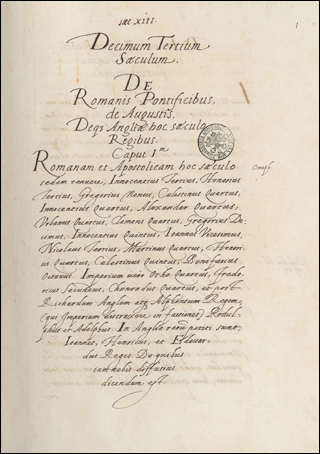 sæc XIII.
1
Decimum Tertium
Sæculum.
DE
Romanis Pontificibus,
de Augustis,
Deqз Angliæ hoc sæculo
Regibus.
Caput I.m
Romanam et Apostolicam hoc sæculo
sedem tenuere, Innocentius Tercius, Honorius
Tercius, Gregorius Nonus, Calestinus Quartus,
Innocentius Quartus, Alexander Quartus,
Vrbanus Quartus, Clemens Quartus, Gregorius De,
cimus, Innocentius Quintus, Ioannes Vicesimus,
Nicolaus Tertius, Martinus Quartus, Honori
us Quartus, Calestinus Quintus, Bonifacius
Octavus. Imperium vero Otho Quartus, Frede,
ricus Secundus, Chonradus Quartus, et post
Richardum Anglum atqз Alphonsum Regem,
(qui Imperium distraxere in factiones) Rodul,
phus et Adolphus. In Anglia rerū potiti sunt,
Ioannes, Henricus, et Edouar,
dus Reges. De quibus
iam nobis diffusius
dicendum est.